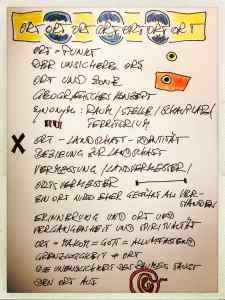 ORT ORT ORT ORT ORT ORT ORT
ORT = PUNKT
DER UNSICHERE ORT
ORT UND ZONE
GEOGRAFISCHES KONZEPT
SYNONYM : RAUM / STELLE / SCHAUPLATZ /
TERRITORIUM
X ORT - LANDSCHAFT - IDENTITÄT
BEZIEHUNG ZUR LANDSCHAFT
VERMESSUNG / LANDVERMESSER /
ORTSVERMESSER
EIN ORT WIRD EHER GEFÜHLT ALS VER-
STANDEN
ERINNERUNG UND ORT UND
VERGANGENHEIT UND SPIRITUALITÄT
ORT = MAKOM = GOTT = ALLUMFASSEND
GRENZLOSIGKEIT + ORT
DIE UNENDLICHKEIT DES RAUMES SAUGT
DEN ORT AUF